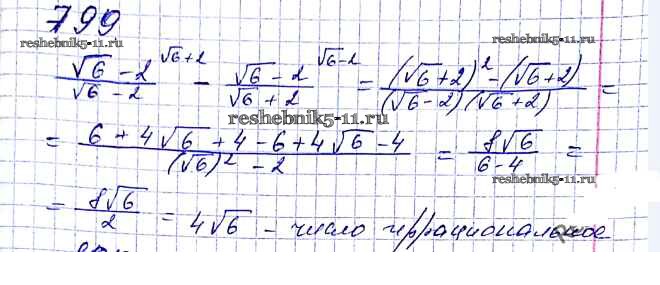 799
reshebnik5-11.ru reshebnik5-11.ru
(√6 - 2)/(√6 - 2) ^(√6+2) - (√6 - 2)/(√6 + 2) ^(√6-2) = ((√6+2)² - (√6+2))/((√6-2)(√6+2)) =
reshebnik5-11.ru
= (6 + 4√6 + 4 - 6 + 4√6 - 4)/((√6)² - 2) = 8√6/(6-4) =
reshebnik5-11.ru
= 8√6/2 = 4√6 - число иррациональное